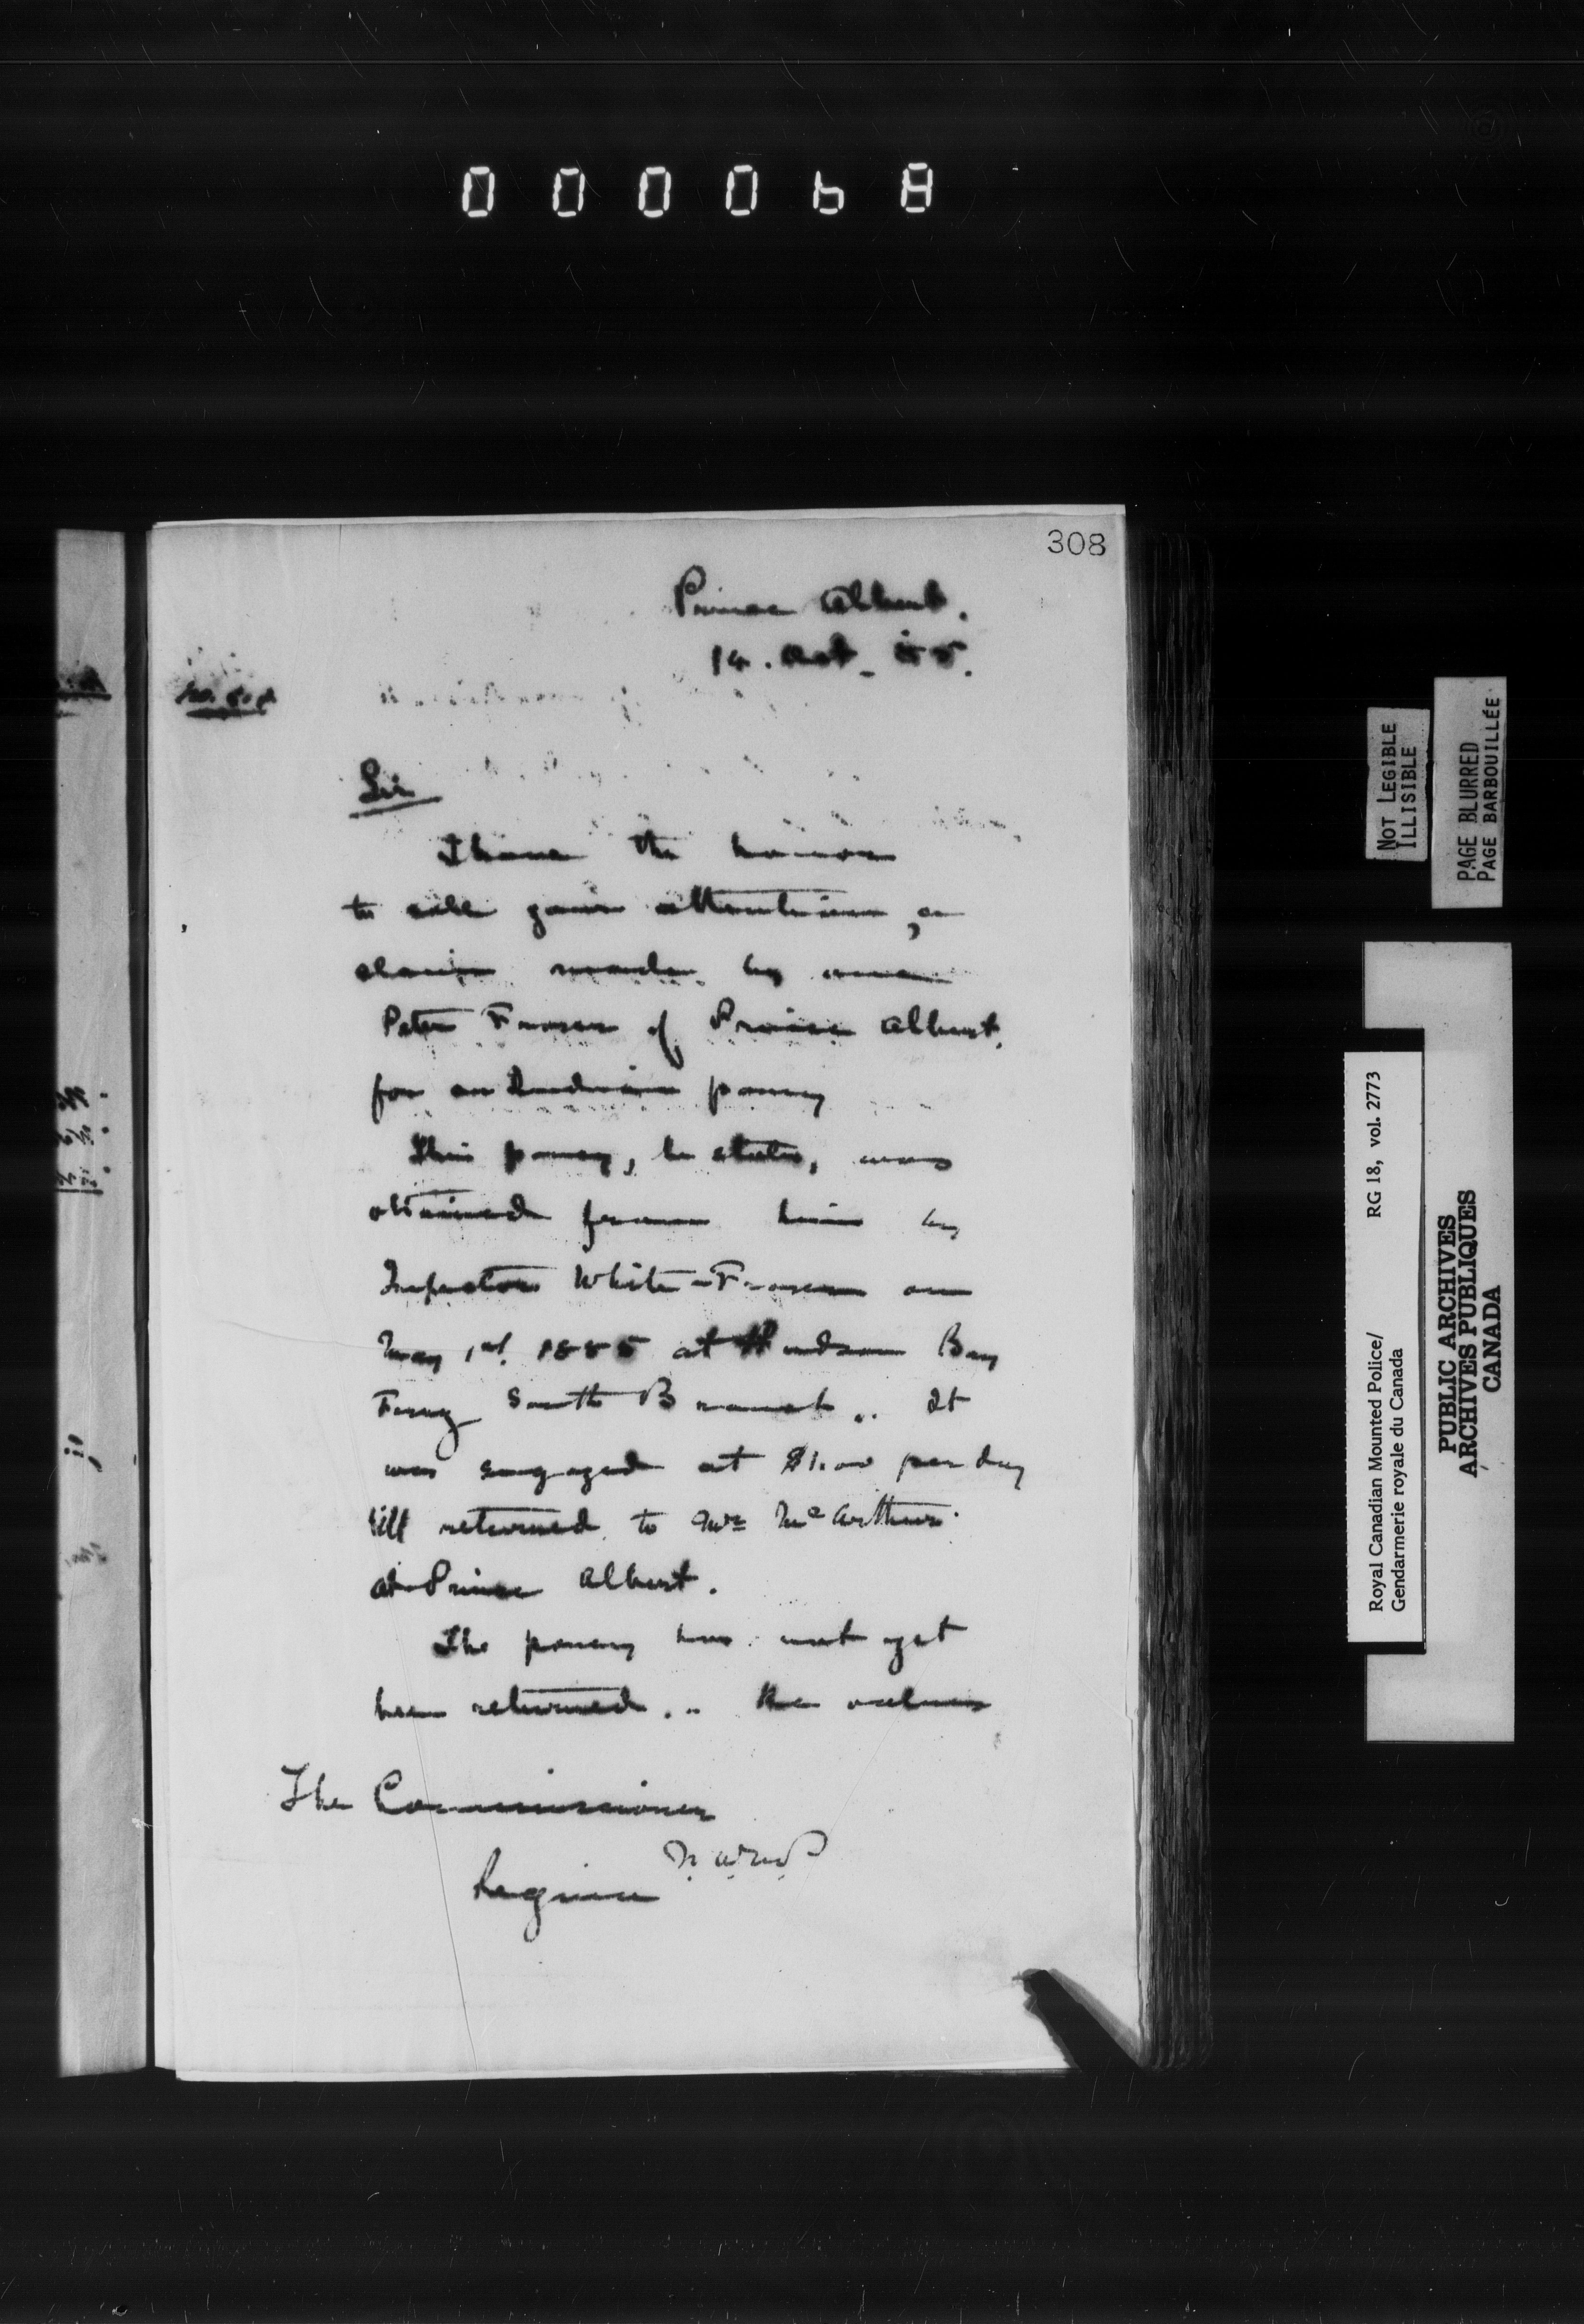 000068
308
Prince Albert.
14. Oct. 85.
Sir
I have the honor
to call your attention, a
claim made by one
Peter Fraser of Prince Albert.
for an Indian poney
This poney, he states, was
obtained from him by
Inspector White-Fraser on
May 1st. 1885 at Hudson Bay
Ferry South Branch.. It
was engaged at $1.00 per day
till returned to Mr McArthur
at Prince Albert.
The poney has not yet
been returned... He values
The Commissioner
N.W.M.P
Regina
NOT LEGIBLE
ILLISIBLE
PAGE BLURRED
PAGE BARBOUILLÉE
Royal Canadian Mounted Police/ RG 18, vol. 2773
Gendarmerie royale du Canada
PUBLIC ARCHIVES
ARCHIVES PUBLIQUES
CANADA